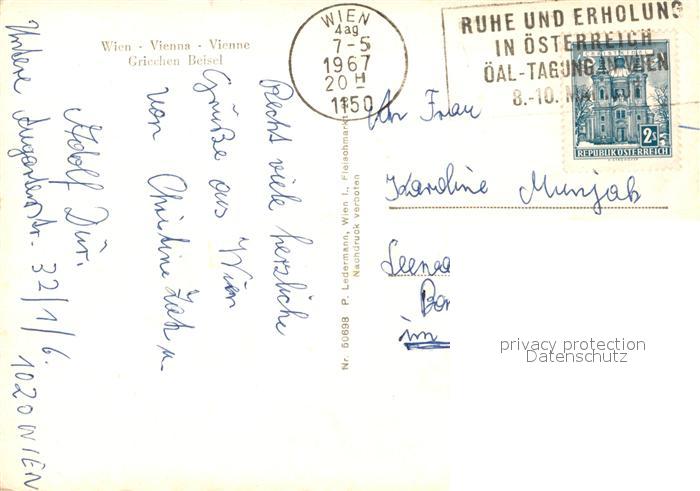 Wien - Vienna - Vienne
Griechen Beisel
Recht viele herzliche
Grüße aus Wien
von Christine
Adolf Dür.
Untere Augartenstr. 32/1/6.
1020 WIEN
Nr. 50698 P. Ledermann, Wien I., Fleischmarkt
Nachdruck verboten
WIEN
4ag
7-5
1967
20 H
1150
RUHE UND ERHOLUNG
IN ÖSTERREICH
ÖAL-TAGUNG IN WIEN
8.-10. MAI
2s
REPUBLIK ÖSTERREICH
An Frau
Karoline Munjak
im
privacy protection
Datenschutz